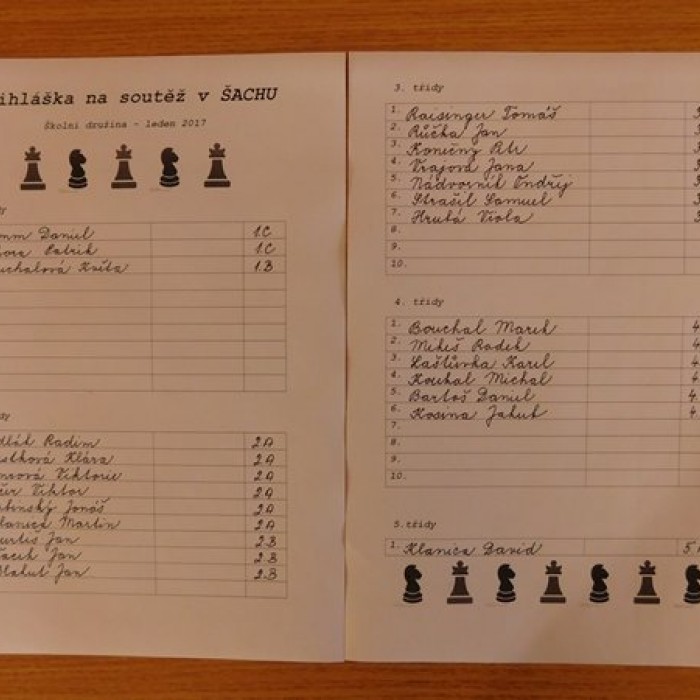 ihláška na soutěž v ŠACHU
Školní družina - leden 2017
dy
mm Daniel 1.C
ora Patrik 1.C
uchalová Květa 1.B
dy
dlák Radim 2.A
stková Klára 2.A
Viktorie 2.A
Viktor 2.A
binský Jonáš 2.A
lanica Martin 2.A
urtiš Jan 2.B
Jan 2.B
Jan 2.B
3. třídy
1. Raisinger Tomáš 3
2. Růčka Jan 3
3. Konečný Petr 3
4. Vrajová Jana 3
5. Nádvorník Ondřej 3
6. Strašil Samuel 3
7. Hrubá Viola 3
8.
9.
10.
4. třídy
1. Bouchal Marek 4
2. Mikeš Radek 4
3. Laštůvka Karel 4
4. Koukal Michal 4
5. Bartoš Daniel 4.
6. Kosina Jakub 4.
7.
8.
9.
10.
5. třídy
1. Klanica David 5.